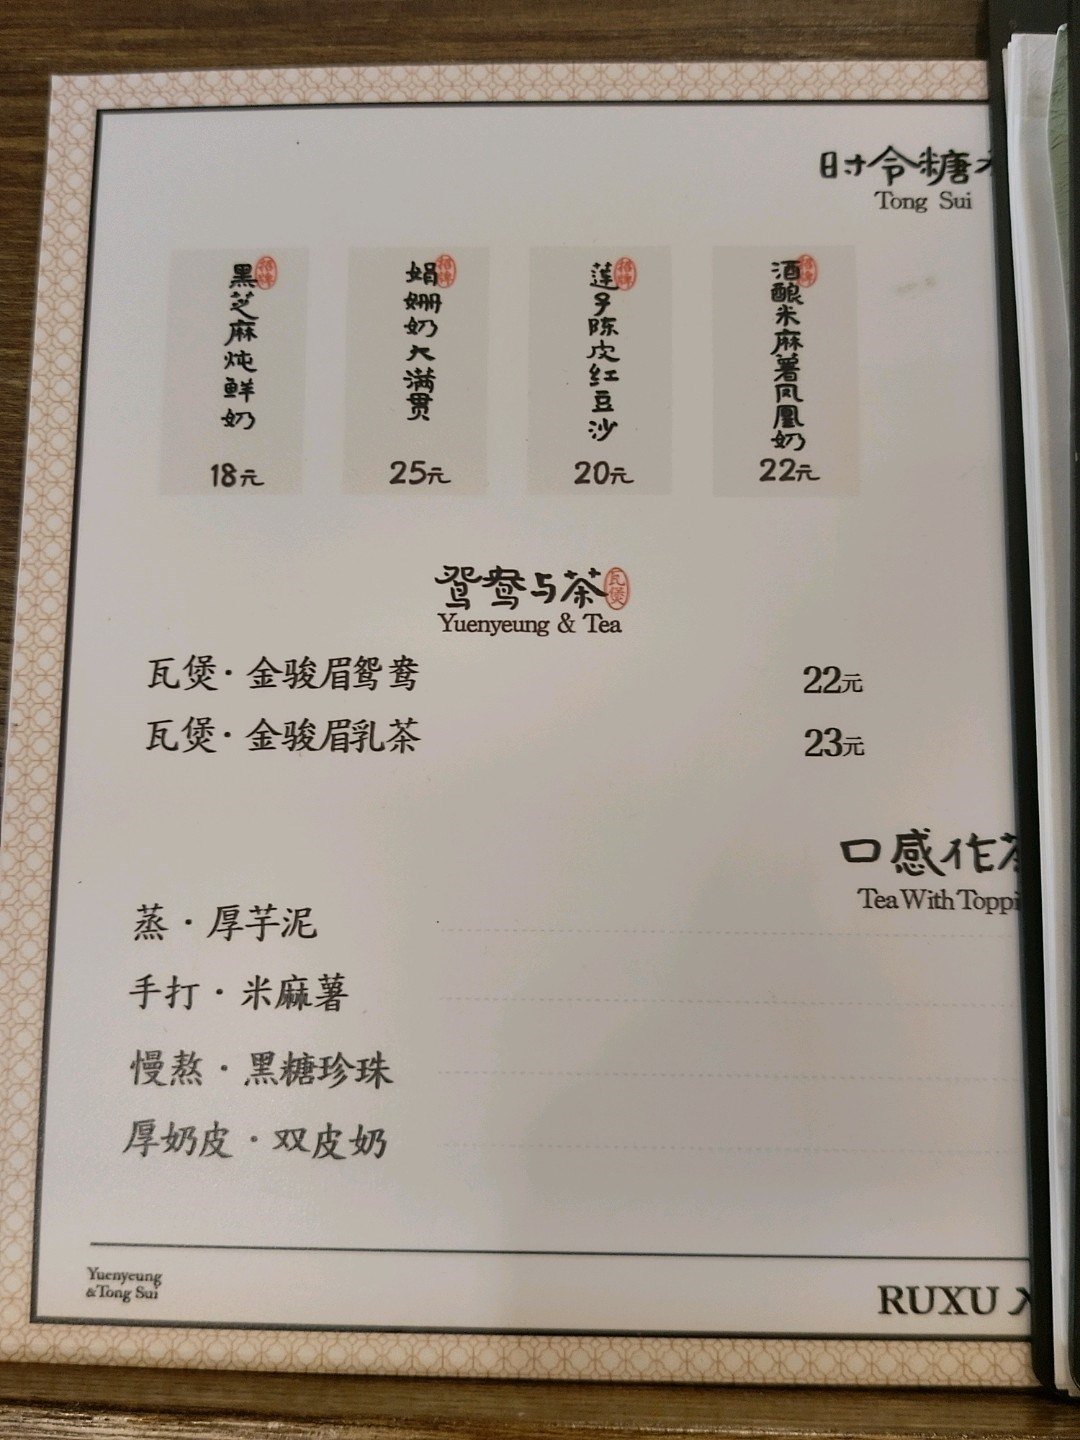 时令糖
Tong Sui
招牌
黑芝麻炖鲜奶
18元
招牌
娟姗奶大满贯
25元
招牌
莲子陈皮红豆沙
20元
招牌
酒酿米麻薯凤凰奶
22元
鸳鸯与茶
瓦煲
Yuenyeung & Tea
瓦煲·金骏眉鸳鸯 22元
瓦煲·金骏眉乳茶 23元
口感作茶
Tea With Toppi
蒸·厚芋泥
手打·米麻薯
慢熬·黑糖珍珠
厚奶皮·双皮奶
Yuenyeung
&Tong Sui
RUXU